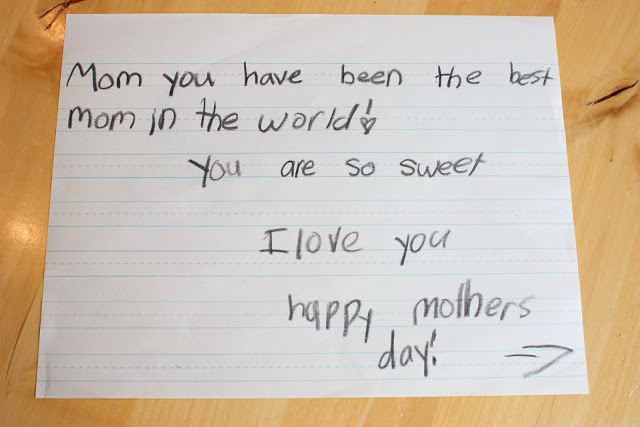 Mom you have been the best
mom in the world!
you are so sweet
I love you
happy mothers
day! =>